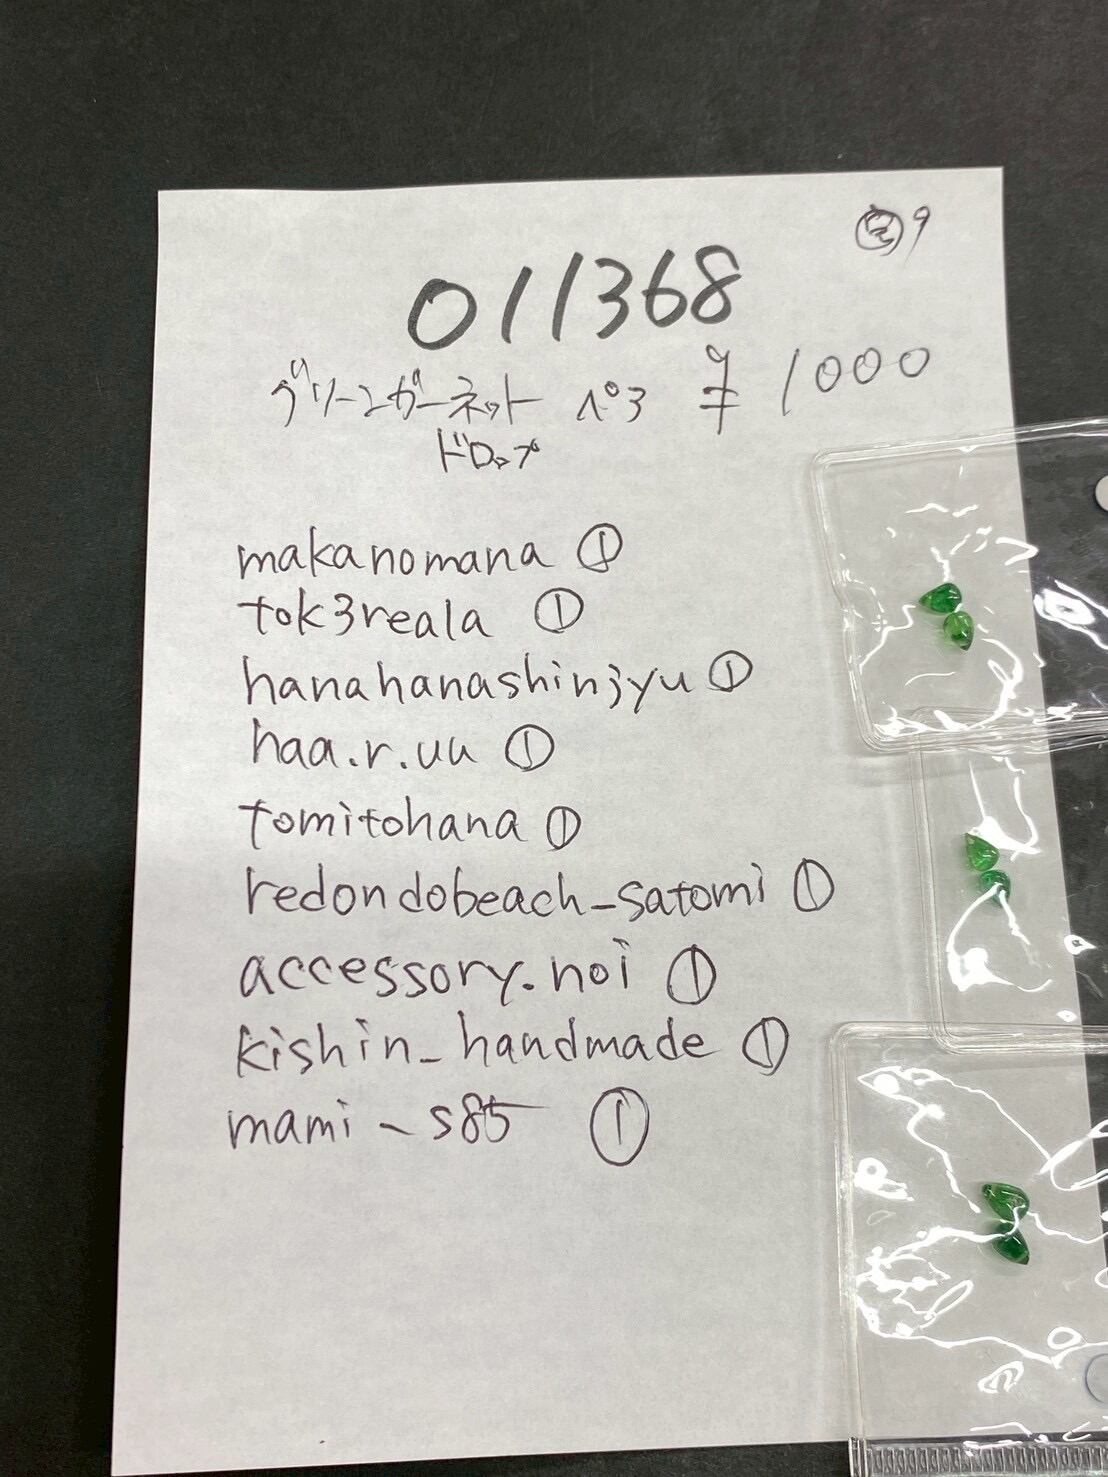 9
011368
グリーンガーネット ペア ¥1000
ドロップ
makanomana ①
tok3reala ①
hanahanashinjyu ①
haa.r.uu ①
tomitohana ①
redondobeach_satomi ①
accessory.noi ①
kishin_handmade ①
mami_s85 ①